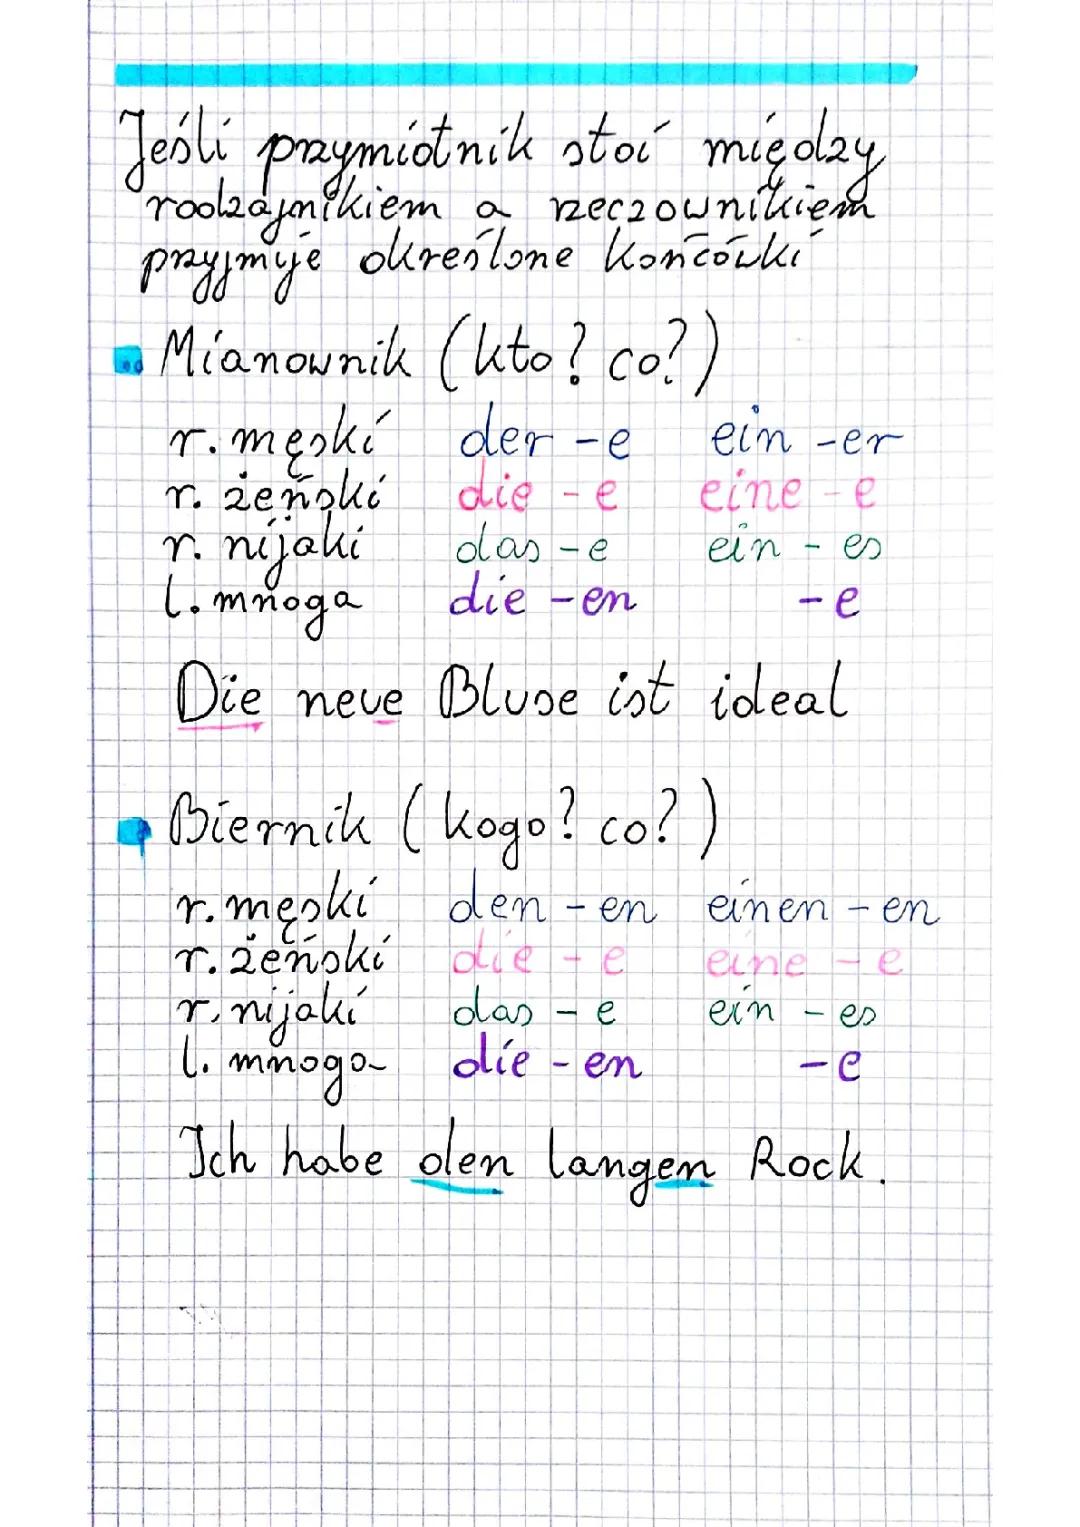 Jeśli przymiotnik stoi między
rodzajnikiem a rzeczownikiem
przyjmuje określone końcówki
Mianownik (kto? co?)
r. męski der -e ein -er
r. żeński die -e eine -e
r. nijaki das -e ein -es
l. mnoga die -en -e
Die neue Bluse ist ideal
Biernik (kogo? co?)
r. męski den -en einen -en
r. żeński die -e eine -e
r. nijaki das -e ein -es
l. mnoga die -en -e
Ich habe den langen Rock.